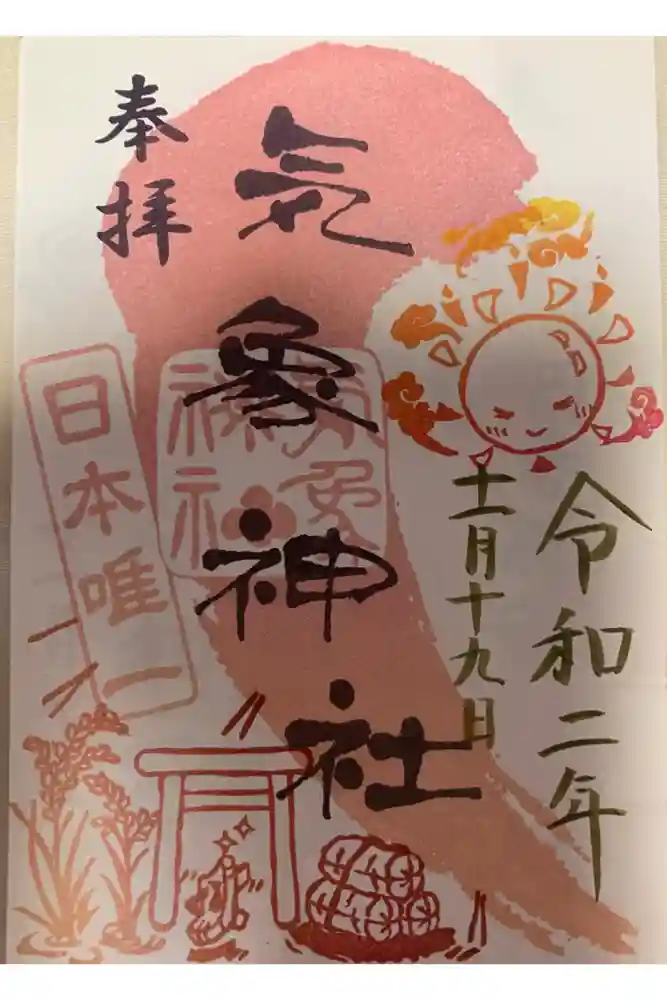 令和二年
十一月十九日
気象神社
奉拝
気象
神社
日本唯一